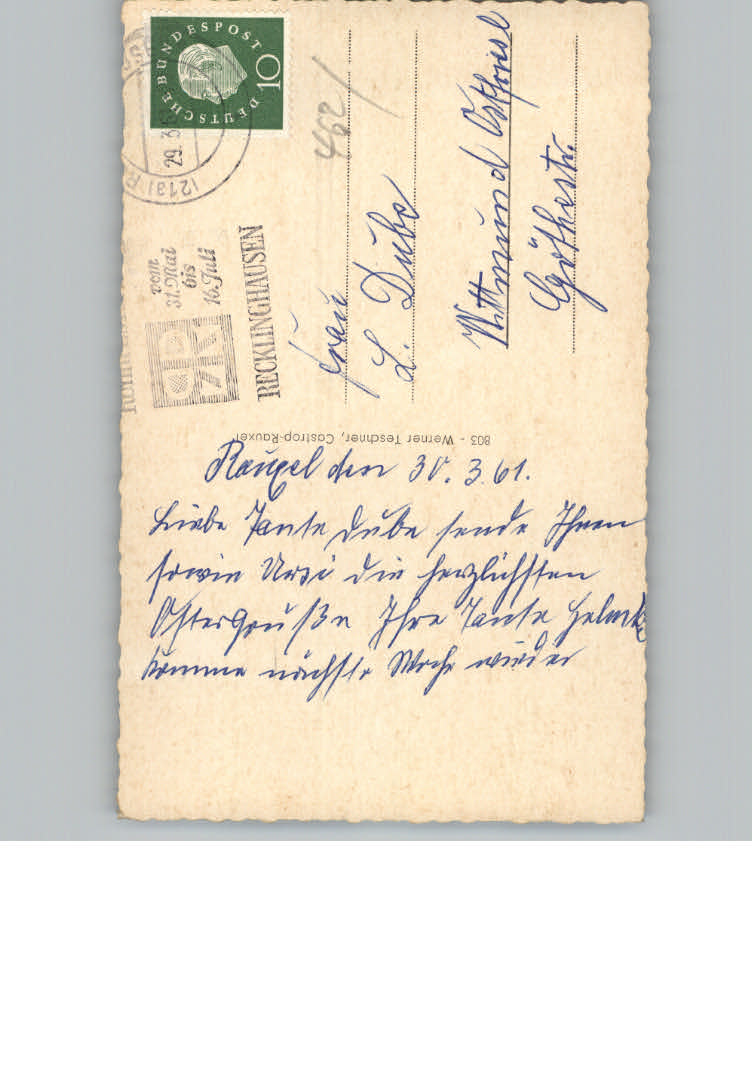 DEUTSCHE BUNDESPOST
10
29. 3.
(21a)
vom
31. Mai
bis
16. Juli
RECKLINGHAUSEN
Frau
L. Dube
Wittmund Ostfriesl
Göthestr.
803 - Werner Teschner, Castrop-Rauxel
Rauxel den 30. 3. 61.
Liebe Tante Dube sende Ihnen
sowie Ursi die herzlichsten
Ostergrüße Ihre Tante
komme nächste Woche wieder